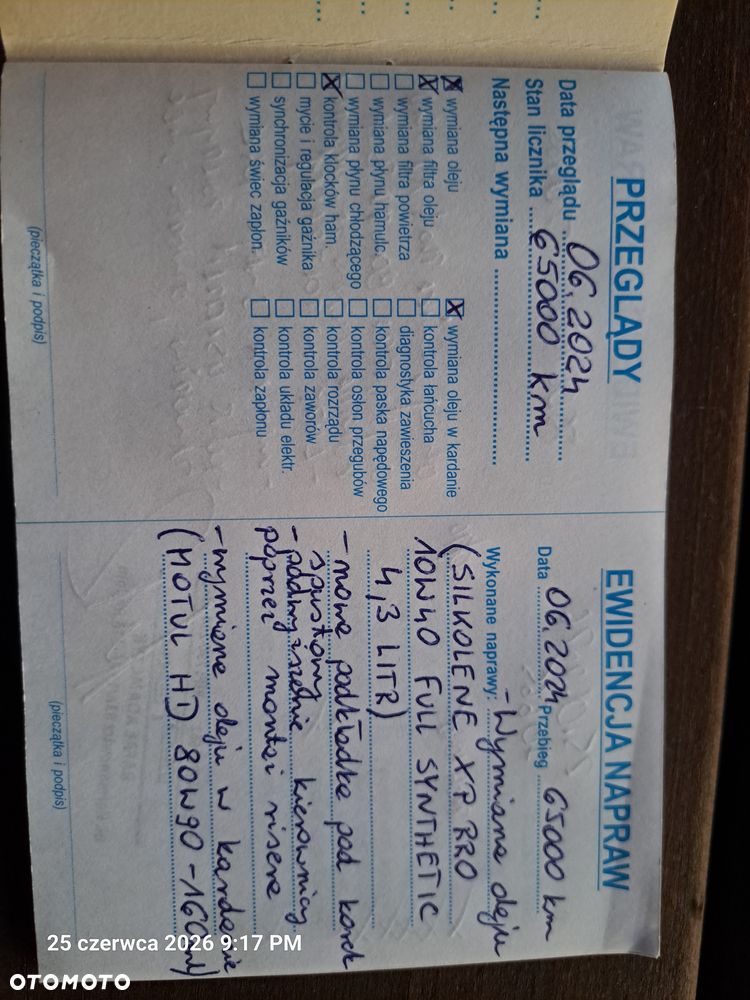 PRZEGLĄDY
Data przeglądu 06.2024
Stan licznika 65000 km
Następna wymiana
☒ wymiana oleju
☒ wymiana filtra oleju
☐ wymiana filtra powietrza
☐ wymiana płynu hamulc.
☐ wymiana płynu chłodzącego
☒ kontrola klocków ham.
☐ mycie i regulacja gaźnika
☐ synchronizacja gaźników
☐ wymiana świec zapłon.
☒ wymiana oleju w kardanie
☐ kontrola łańcucha
☐ diagnostyka zawieszenia
☐ kontrola paska napędowego
☐ kontrola osłon przegubów
☐ kontrola rozrządu
☐ kontrola zaworów
☐ kontrola układu elektr.
☐ kontrola zapłonu
(pieczątka i podpis)
EWIDENCJA NAPRAW
Data 06.2024 Przebieg 65000 km
Wykonane naprawy: - Wymiana oleju
(SILKOLENE XP PRO
10W40 FULL SYNTHETIC
4,3 LITR)
- nowa podkładka pod korek
spustowy
- podwyższenie kierownicy
poprzez montaż risera
- wymiana oleju w kardanie
(MOTUL HD 80W90 - 160ml)
(pieczątka i podpis)
25 czerwca 2026 9:17 PM
OTOMOTO